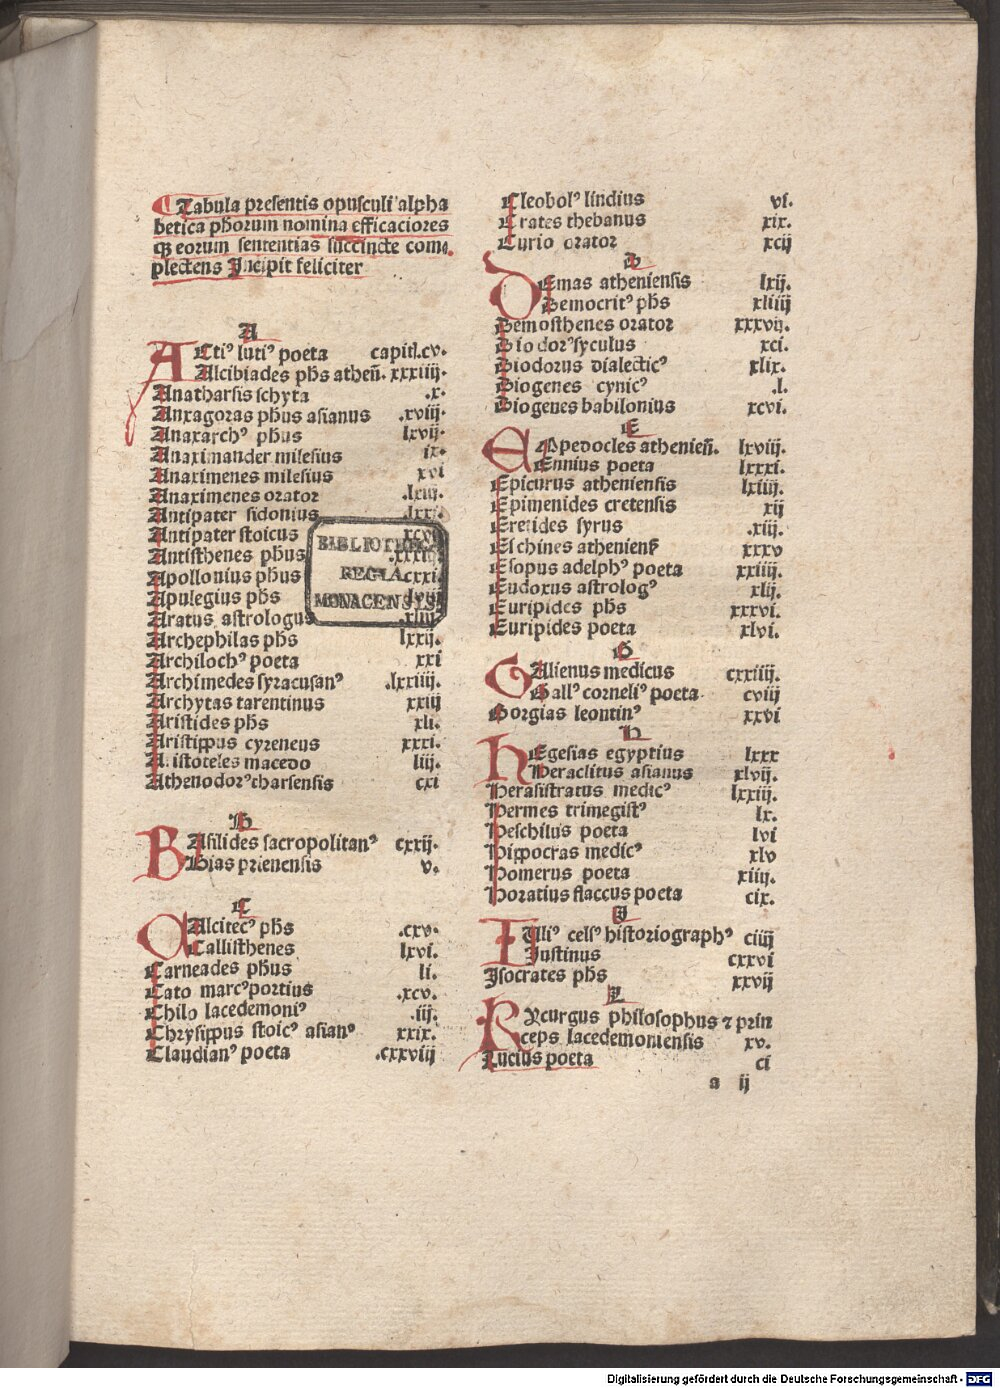 Tabula presentis opusculi alpha
betica phorum nomina efficaciores
q̃ eorum sententias succincte com
plectens Incipit feliciter
A
ACti⁹ luti⁹ poeta capitl.cv.
Alcibiades phs atheñ. xxxiiij.
Anatharsis schyta .x.
Anxagoras phus asianus .xviij.
Anaxarch⁹ phus lxvij.
Anaximander milesius ix.
Anaximenes milesius xvi
Anaximenes orator .lxiij.
Antipater sidonius
Antipater stoicus
Antisthenes phus
Apollonius phus cxxi.
Apulegius phs
Aratus astrologus
Archephilas phs lxxij.
Archiloch⁹ poeta xxi
Archimedes syracusan⁹ .lxxiiij.
Archytas tarentinus xxiij
Aristides phs xli.
Aristippus cyreneus xxxi.
Aristoteles macedo liij.
Athenodor⁹ tharsensis cxi
B
BAsilides sacropolitan⁹ cxxij.
Bias prienensis v.
C
CAlcitec⁹ phs .cxv.
Callisthenes lxvi.
Carneades phus li.
Cato marc⁹ portius .xcv.
Chilo lacedemoni⁹ .iij.
Chrysippus stoic⁹ asian⁹ xxix.
Claudian⁹ poeta .cxxviij
Cleobol⁹ lindius vi.
Crates thebanus xix.
Curio orator xcij
D
DEmas atheniensis lxij.
Democrit⁹ phs xliiij
Demosthenes orator xxxvij.
Diodor⁹ syculus xci.
Diodorus dialectic⁹ xlix.
Diogenes cynic⁹ .l.
Diogenes babilonius xcvi.
E
EMpedocles athenieñ. lxviij.
Ennius poeta lxxxi.
Epicurus atheniensis lxiiij.
Epimenides cretensis xij
Eretides syrus .xiij.
Eschines atheniens̃ xxxv
Esopus adelph⁹ poeta xxiiij.
Eudoxus astrolog⁹ xlij.
Euripides phs xxxvi.
Euripides poeta xlvi.
G
GAlienus medicus cxxiiij.
Gall⁹ corneli⁹ poeta cviij
Gorgias leontin⁹ xxvi
H
HEgesias egyptius lxxx
Heraclitus asianus xlvij.
Herasistratus medic⁹ lxxiij.
Hermes trimegist⁹ lx.
Heschilus poeta lvi
Hippocras medic⁹ xlv
Homerus poeta xiiij.
Horatius flaccus poeta cix.
I
IUli⁹ cels⁹ historiograph⁹ ciiij
Justinus cxxvi
Jsocrates phs xxvij
L
LYcurgus philosophus ⁊ prin
ceps lacedemoniensis xv.
Lucius poeta ci
a ij
BIBLIOTHECA
REGIA
MONACENSIS
Digitalisierung gefördert durch die Deutsche Forschungsgemeinschaft - DFG